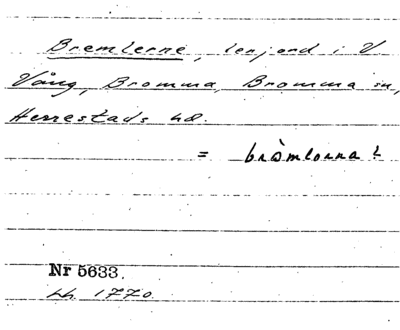 Bremlerne, lerjord i V
Vång, Bromma, Bromma sn,
Herrestads hd.
= brämlorna?
Nr 5633.
Lh. 1770.